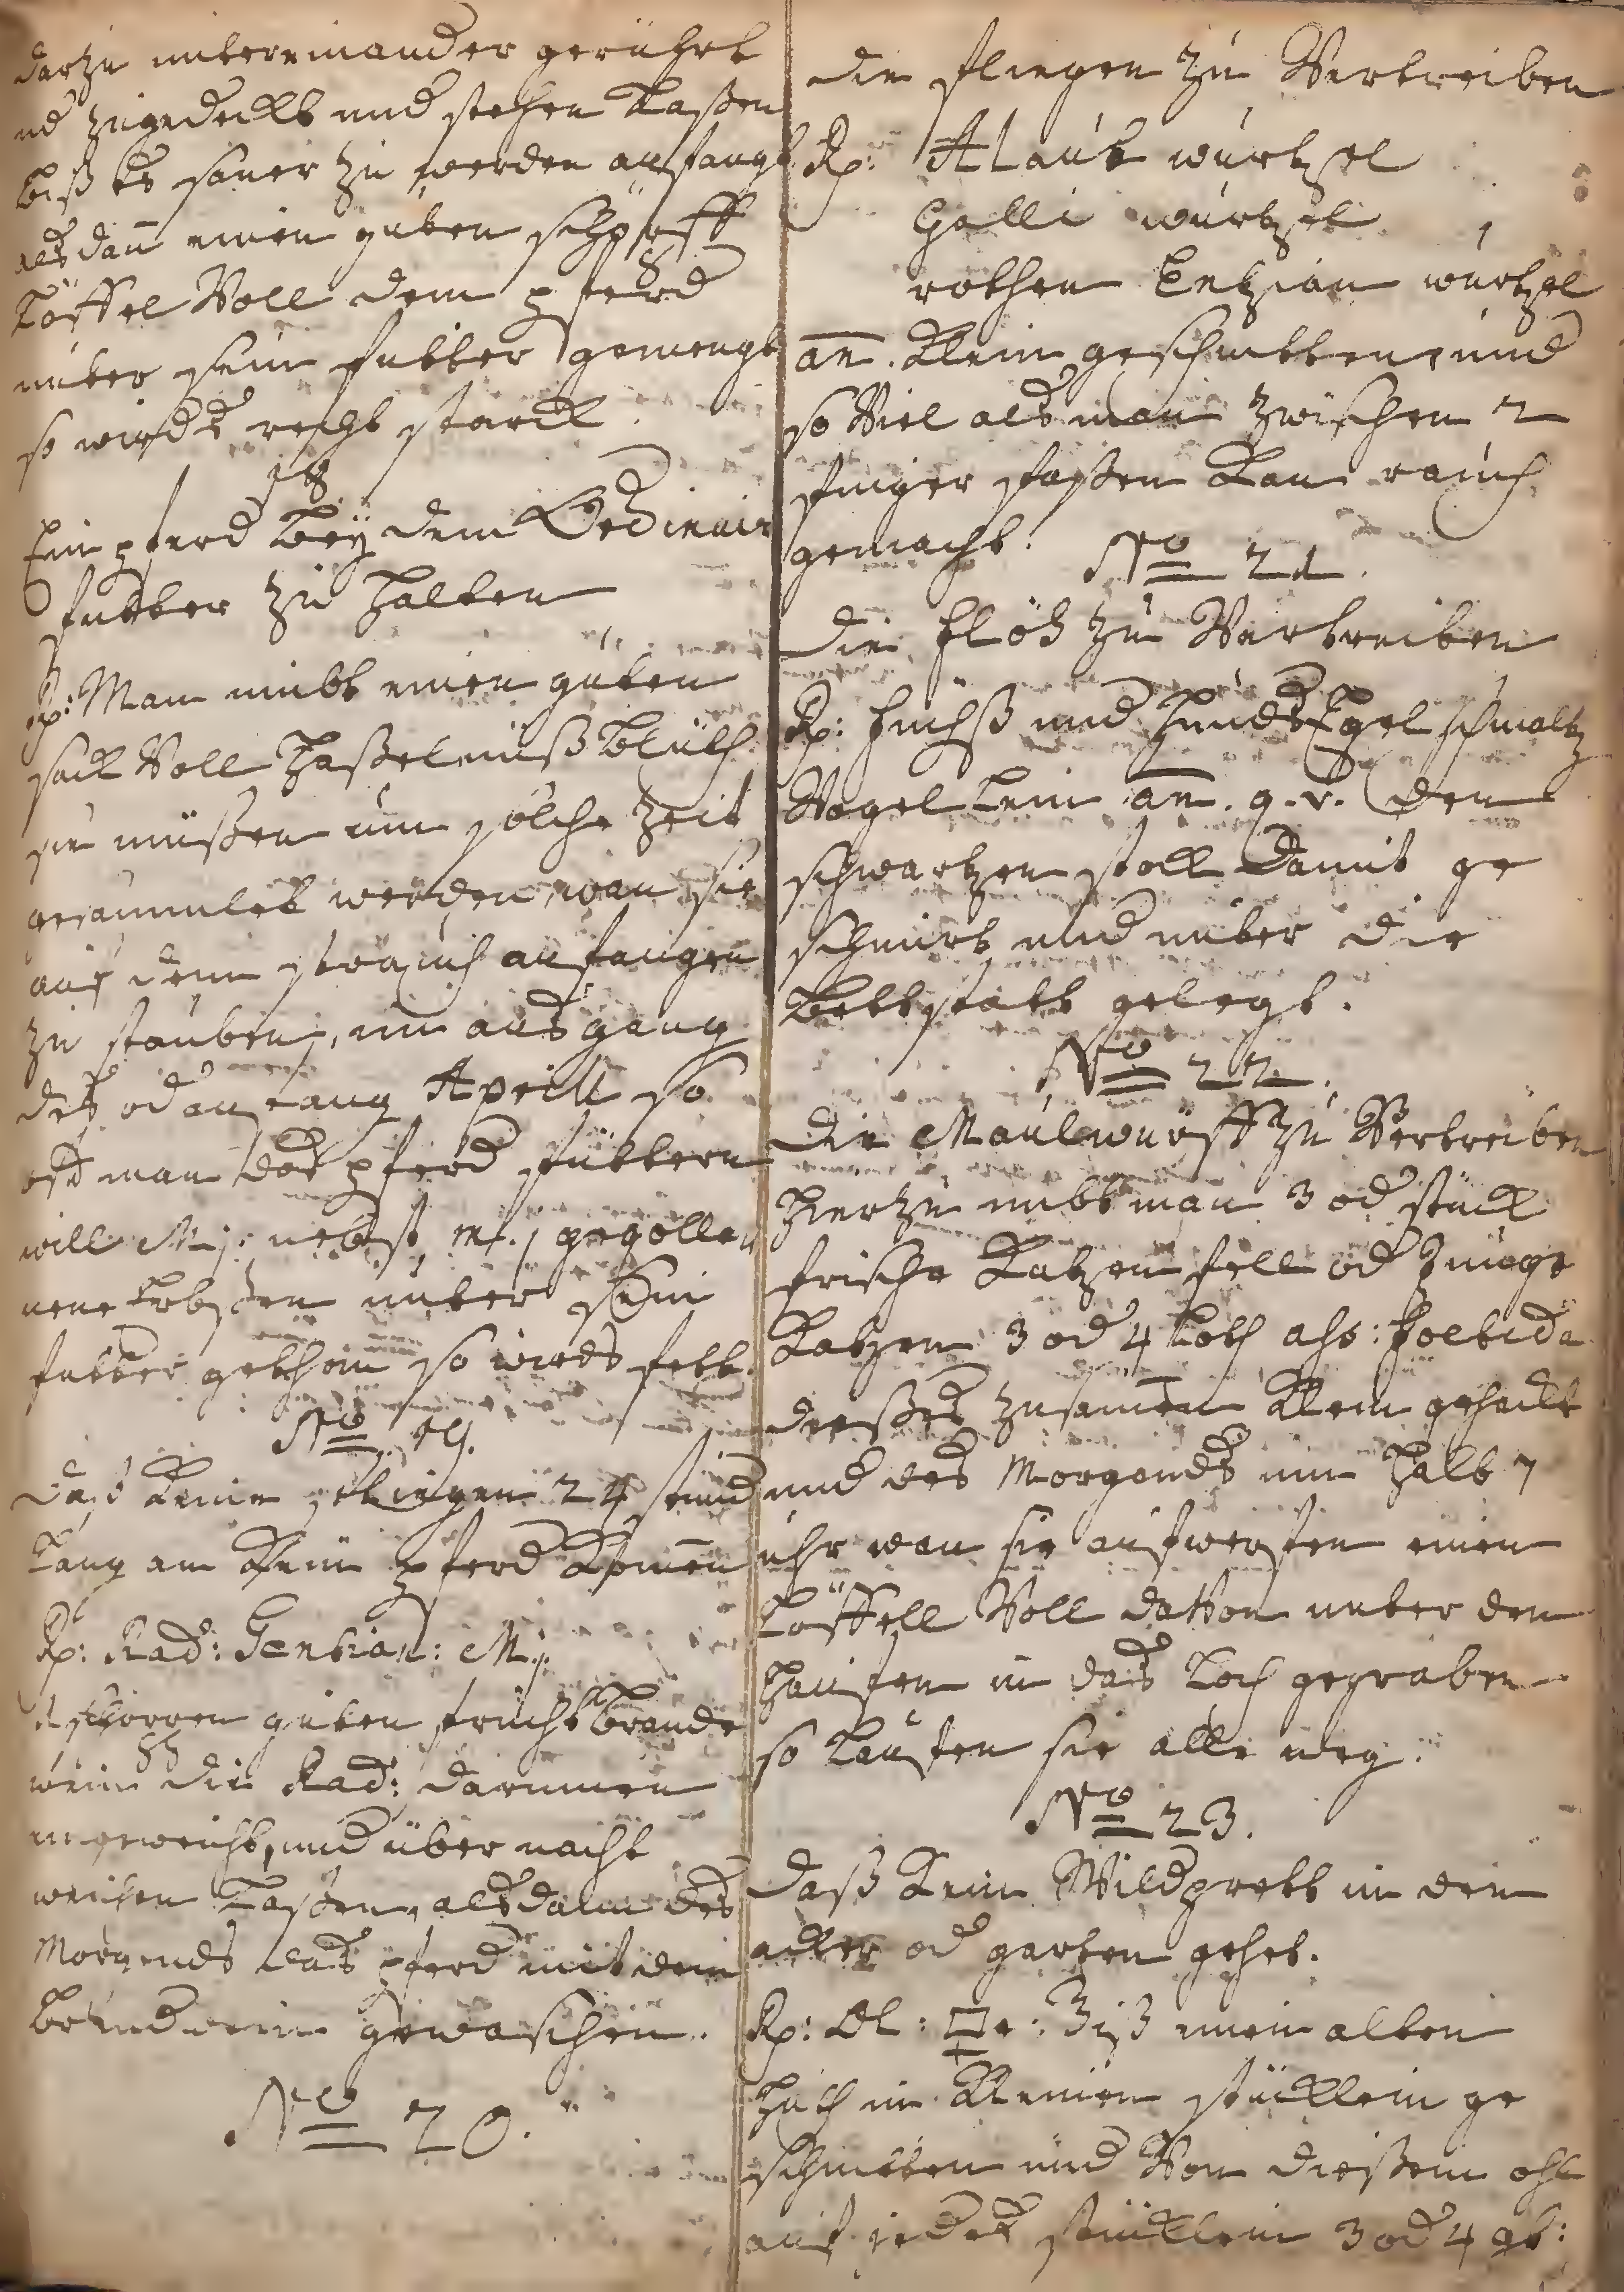 darzu untereinander gerührt
und zugedeckt und stehen laßen
biß es sauer zu werden anfangt
als dan̄ einen guten schöpff
löffel Voll dem pferd
unter sein futter gemengt
so wirds recht starck.
18
Ein pferd beÿ dem Ordinair
futter zu halten
Rp: Man nimbt einen guten
sack Voll Haßelnuß blüth
sie müßen um solche Zeit
gesammlet werden wan sie
auf dem strauch anfangen
zu stauben, im ausgang
des od anfang Aprill so
offt man das pferd füttern
will Mj: nebst m. j gequolle
nene Erbsen unter sein
futter gethan so wirds fett.
No. 19.
daß keine fliegen 24 stund
lang an kein pferd kom̄en
Rp: Rad: Gentian: Mj.
1 schoppen guten frucht brande
wein die Rad: darinnen
eingeweicht, und über nacht
weichen laßen, alsdann des
Morgends das pferd mit dem
brandwein gewaschen.
No 20.
die fliegen zu Vertreiben
Rp: Alant wurtzel
Galli wurtzel
rothen Entzian wurtzel
an. klein geschnitten und
so Viel als man zwischen 2
finger faßen kan rauch
gemacht.
No 21.
die flöh zu Vertreiben
Rp: fuchß und Hunds Egel schmaltz
Vogel leim an. q. v. den
schwartzen stoll damit ge
schmirt und unter die
bettstatt gelegt.
No 22.
die Maulwürff zu Vertreiben
Hierzu nimbt man 3 od stück
frische Katzen fell od Junge
Katzen 3 od 4 loth ass: foetida
dießes zusam̄en klein gehackt
und des Morgends um halb 7
uhr wan sie aufwerffen einen
löffell Voll daVon unter den
hauffen in das loch gegraben
so lauffen sie alle weg.
No 23.
daß kein Wildprett in den
acker od garten gehet.
Rp: Ol: einen alten
Huth in kleine stücklein ge
schnitten und Von dießem ohl
auf jedes stücklein 3 od 4 gt: